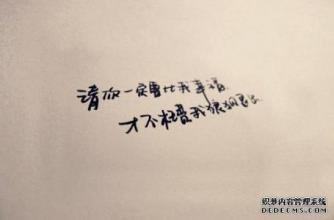 请你一定要比我幸福
才不枉费我狼狈退出
织梦内容管理系统
DEDECMS.COM